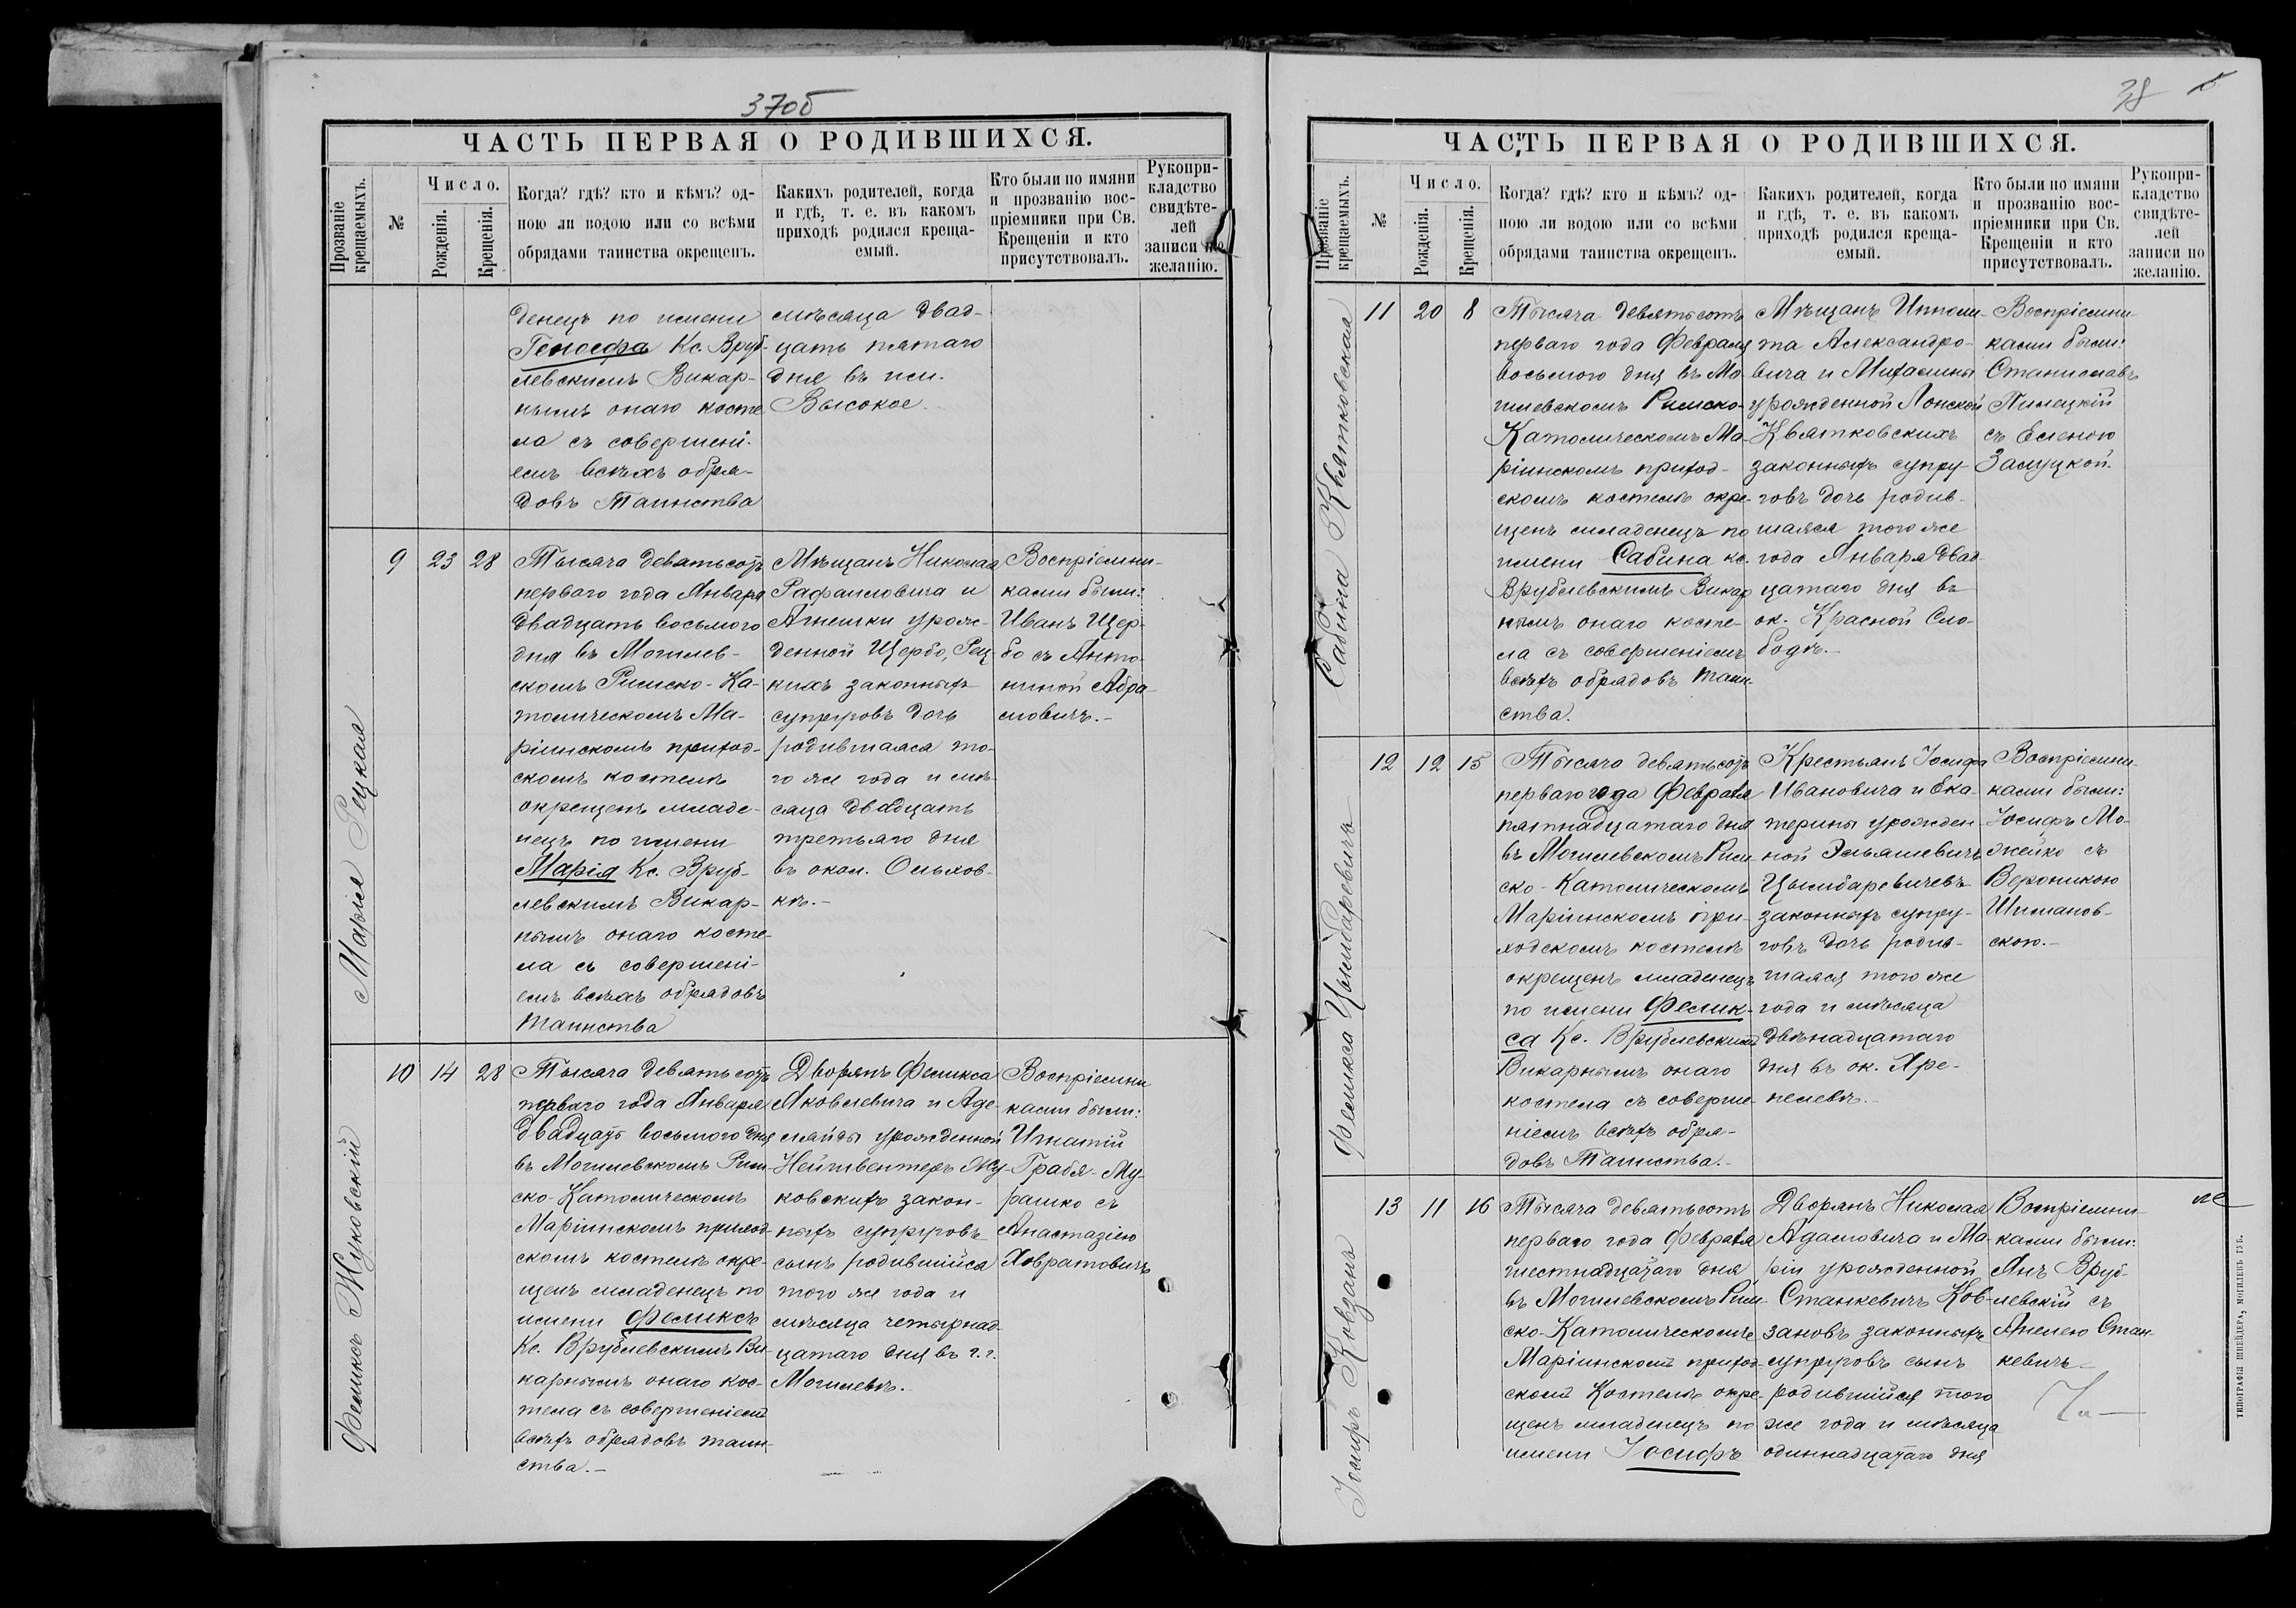 37об
ЧАСТЬ ПЕРВАЯ О РОДИВШИХСЯ.
Прозваніе крещаемыхъ.
№
Число.
Рожденія.
Крещенія.
Когда? гдѣ? кто и кѣмъ? од-
ною ли водою или со всѣми
обрядами таинства окрещенъ.
Какихъ родителей, когда
и гдѣ, т. е. въ какомъ
приходѣ родился креща-
емый.
Кто были по имяни
и прозванію вос-
пріемники при Св.
Крещеніи и кто
присутствовалъ.
Рукопри-
кладство
свидѣте-
лей
записи по
желанію.
денецъ по имени
Генозефа Кс. Вруб-
левскимъ Викар-
нымъ онаго косте
ла съ совершені-
емъ всѣхъ обря-
довъ Таинства
мѣсяца двад-
цать пятаго
дня въ им.
Высокое.
Марія Рецкая
9 23 28
Тысяча девятьсотъ
перваго года Января
двадцать восьмого
дня въ Могилев-
скомъ Римско-Ка-
толическомъ Ма-
ріинскомъ приход-
скомъ костелѣ
окрещенъ младе-
нецъ по имени
Марія Кс. Вруб-
левскимъ Викар-
нымъ онаго косте-
ла съ совершені-
емъ всѣхъ обрядовъ
таинства
Мѣщанъ Николая
Рафаиловича и
Агнешки урож-
денной Щербо, Рец-
кихъ законныхъ
супруговъ дочь
родившаяся то-
го же года и мѣ-
сяца двадцать
третьяго дня
въ окол. Ольхов-
кѣ.-
Воспріемни-
ками были:
Иванъ Щер-
бо съ Анто-
ниной Абра-
мовичъ.-
Феликсъ Жуковскій
10 14 28
Тысяча девятьсотъ
перваго года Января
двадцать восьмого дня
въ Могилевскомъ Рим-
ско-Католическомъ
Маріинскомъ приход
скомъ костелѣ окре-
щенъ младенецъ по
имени Феликсъ
Кс. Врублевскимъ Ви-
карнымъ онаго кос-
тела съ совершеніемъ
всѣхъ обрядовъ таин-
ства.-
Дворянъ Феликса
Яковлевича и Аде-
лаиды урожденной
Нейгвентеръ Жу-
ковскихъ закон-
ныхъ супруговъ
сынъ родившійся
того же года и
мѣсяца четырнад-
цатаго дня въ г.г.
Могилевѣ.-
Воспріемни
ками были:
Игнатій
Грабя-Му-
рашко съ
Анастазіею
Ховратовичъ
38
ЧАСТЬ ПЕРВАЯ О РОДИВШИХСЯ.
Прозваніе крещаемыхъ.
№
Число.
Рожденія.
Крещенія.
Когда? гдѣ? кто и кѣмъ? од-
ною ли водою или со всѣми
обрядами таинства окрещенъ.
Какихъ родителей, когда
и гдѣ, т. е. въ какомъ
приходѣ родился креща-
емый.
Кто были по имяни
и прозванію вос-
пріемники при Св.
Крещеніи и кто
присутствовалъ.
Рукопри-
кладство
свидѣте-
лей
записи по
желанію.
Сабина Квятковская
11 20 8
Тысяча девятьсотъ
перваго года Февраля
восьмого дня въ Мо-
гилевскомъ Римско-
Католическомъ Ма-
ріинскомъ приход-
скомъ костелѣ окре-
щенъ младенецъ по
имени Сабина кс.
Врублевскимъ Викар
нымъ онаго косте-
ла съ совершеніемъ
всѣхъ обрядовъ таин-
ства.
Мѣщанъ Ипполи-
та Александро-
вича и Михалины
урожденной Лонской
Квятковскихъ
законныхъ супру-
говъ дочь родив-
шаяся того же
года Января двад
цатаго дня въ
ок. Красной Сло-
бодѣ.-
Воспріемни-
ками были:
Станиславъ
Пилецкій
съ Еленою
Залуцкой.
Феликса Цымбаревичъ
12 12 15
Тысяча девятьсотъ
перваго года Февраля
пятнадцатаго дня
въ Могилевскомъ Рим
ско-Католическомъ
Маріинскомъ при-
ходскомъ костелѣ
окрещенъ младенецъ
по имени Фелик-
са Кс. Врублевскимъ
Викарнымъ онаго
костела съ соверше-
ніемъ всѣхъ обря-
довъ Таинства.-
Крестьянъ Іосифа
Ивановича и Ека-
терины урожден-
ной Эльяшевичъ
Цымбаревичевъ
законныхъ супру-
говъ дочь родив-
шаяся того же
года и мѣсяца
двѣнадцатаго
дня въ ок. Хре-
пелевѣ.-
Воспріемни-
ками были:
Іосифъ Мо-
жейко съ
Вероникою
Шиманов-
скою.-
Іосифъ Ковзанъ
13 11 16
Тысяча девятьсотъ
перваго года Февраля
шестнадцатаго дня
въ Могилевскомъ Рим-
ско-Католическомъ
Маріинскомъ приход-
скомъ Костелѣ окре-
щенъ младенецъ по
имени Іосифъ
Дворянъ Николая
Адамовича и Ма-
ріи урожденной
Станкевичъ Ков-
зановъ законныхъ
супруговъ сынъ
родившійся того
же года и мѣсяца
одиннадцатаго дня
Воспріемни-
ками были:
Янъ Вруб-
левскій съ
Анелею Стан-
кевичъ-
ТИПОГРАФІЯ ШНЕЙДЕРА, МОГИЛЕВЪ ГУБ.